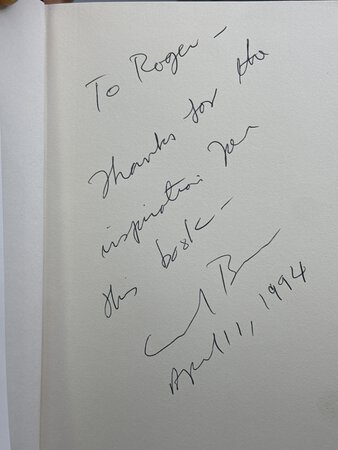 To Roger -
Thanks for the
inspiration for
this book -
April 11, 1994